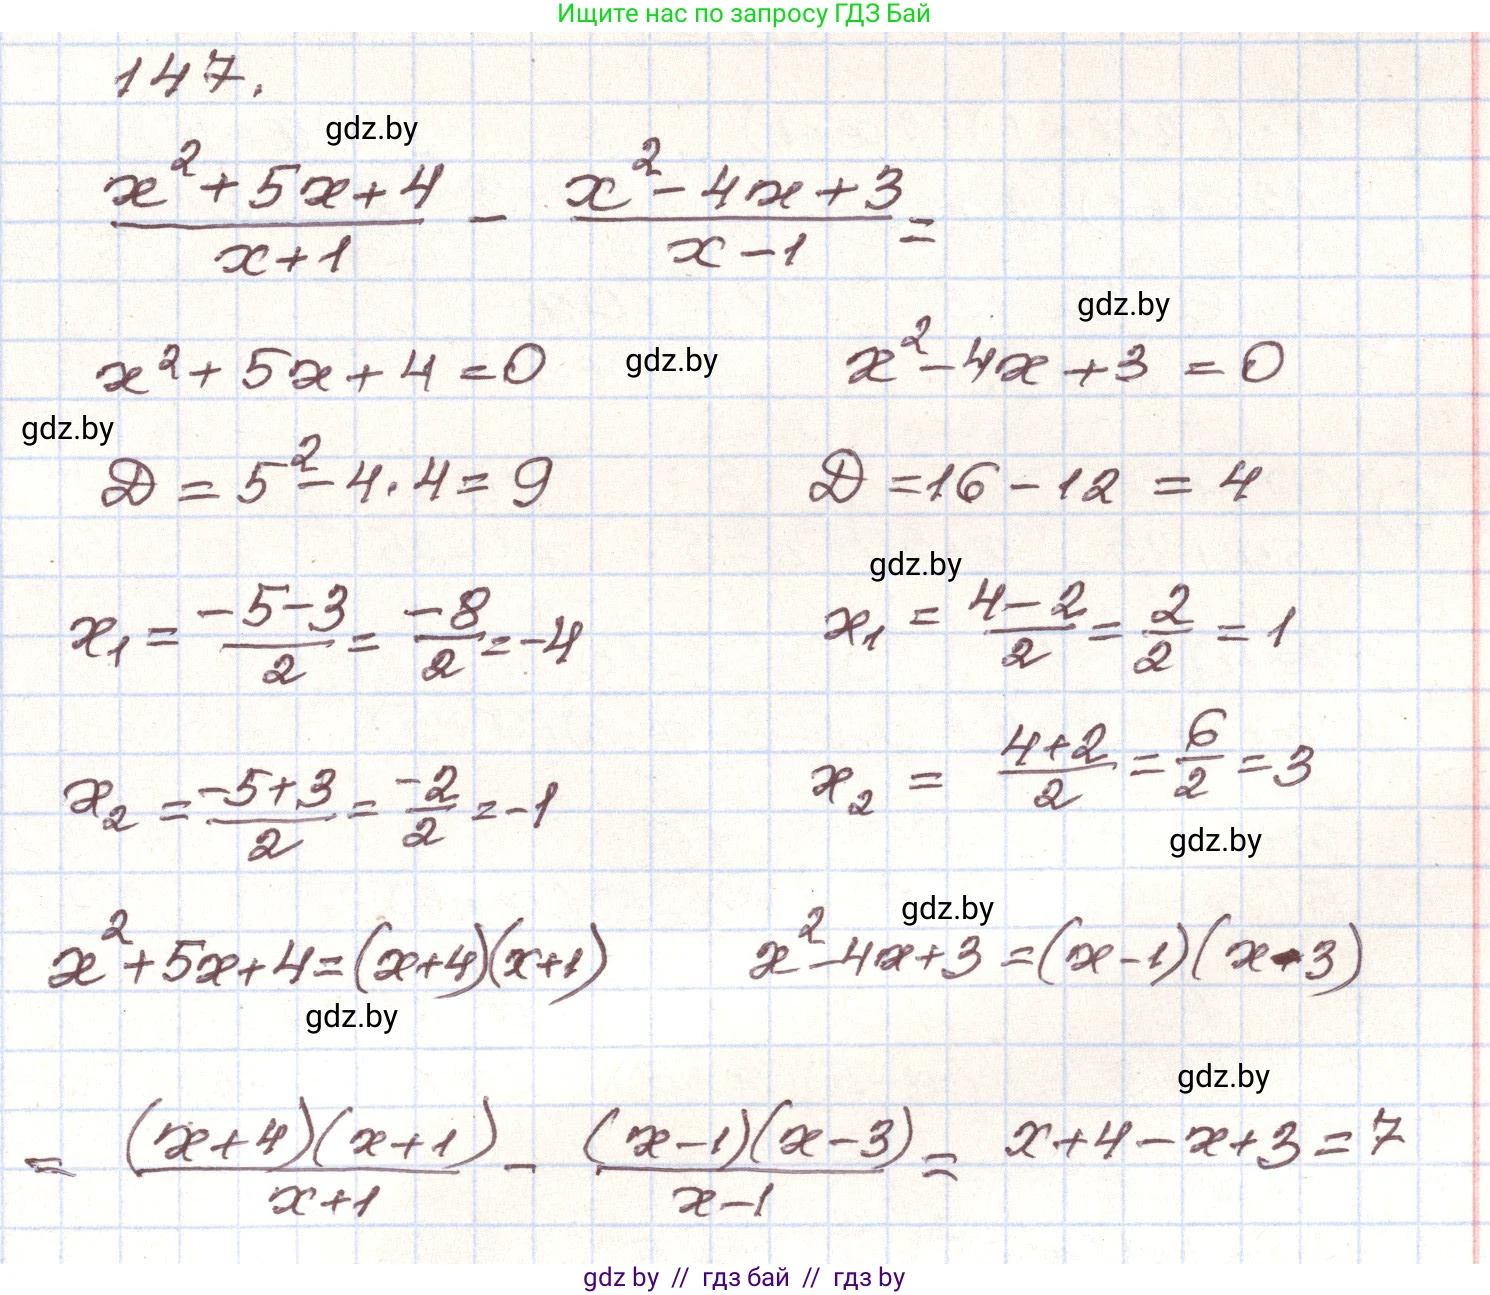 Ищите нас по запросу ГДЗ Бай
147.
gdz.by
(x² + 5x + 4)/(x + 1) - (x² - 4x + 3)/(x - 1) =
gdz.by
x² + 5x + 4 = 0 gdz.by x² - 4x + 3 = 0
gdz.by
D = 5² - 4 · 4 = 9 D = 16 - 12 = 4
gdz.by
x₁ = (-5-3)/2 = -8/2 = -4 x₁ = (4-2)/2 = 2/2 = 1
x₂ = (-5+3)/2 = -2/2 = -1 x₂ = (4+2)/2 = 6/2 = 3
gdz.by
gdz.by
x² + 5x + 4 = (x+4)(x+1) x² - 4x + 3 = (x-1)(x-3)
gdz.by
gdz.by
= (x+4)(x+1)/(x+1) - (x-1)(x-3)/(x-1) = x+4-x+3 = 7
gdz by // гдз бай // гдз by